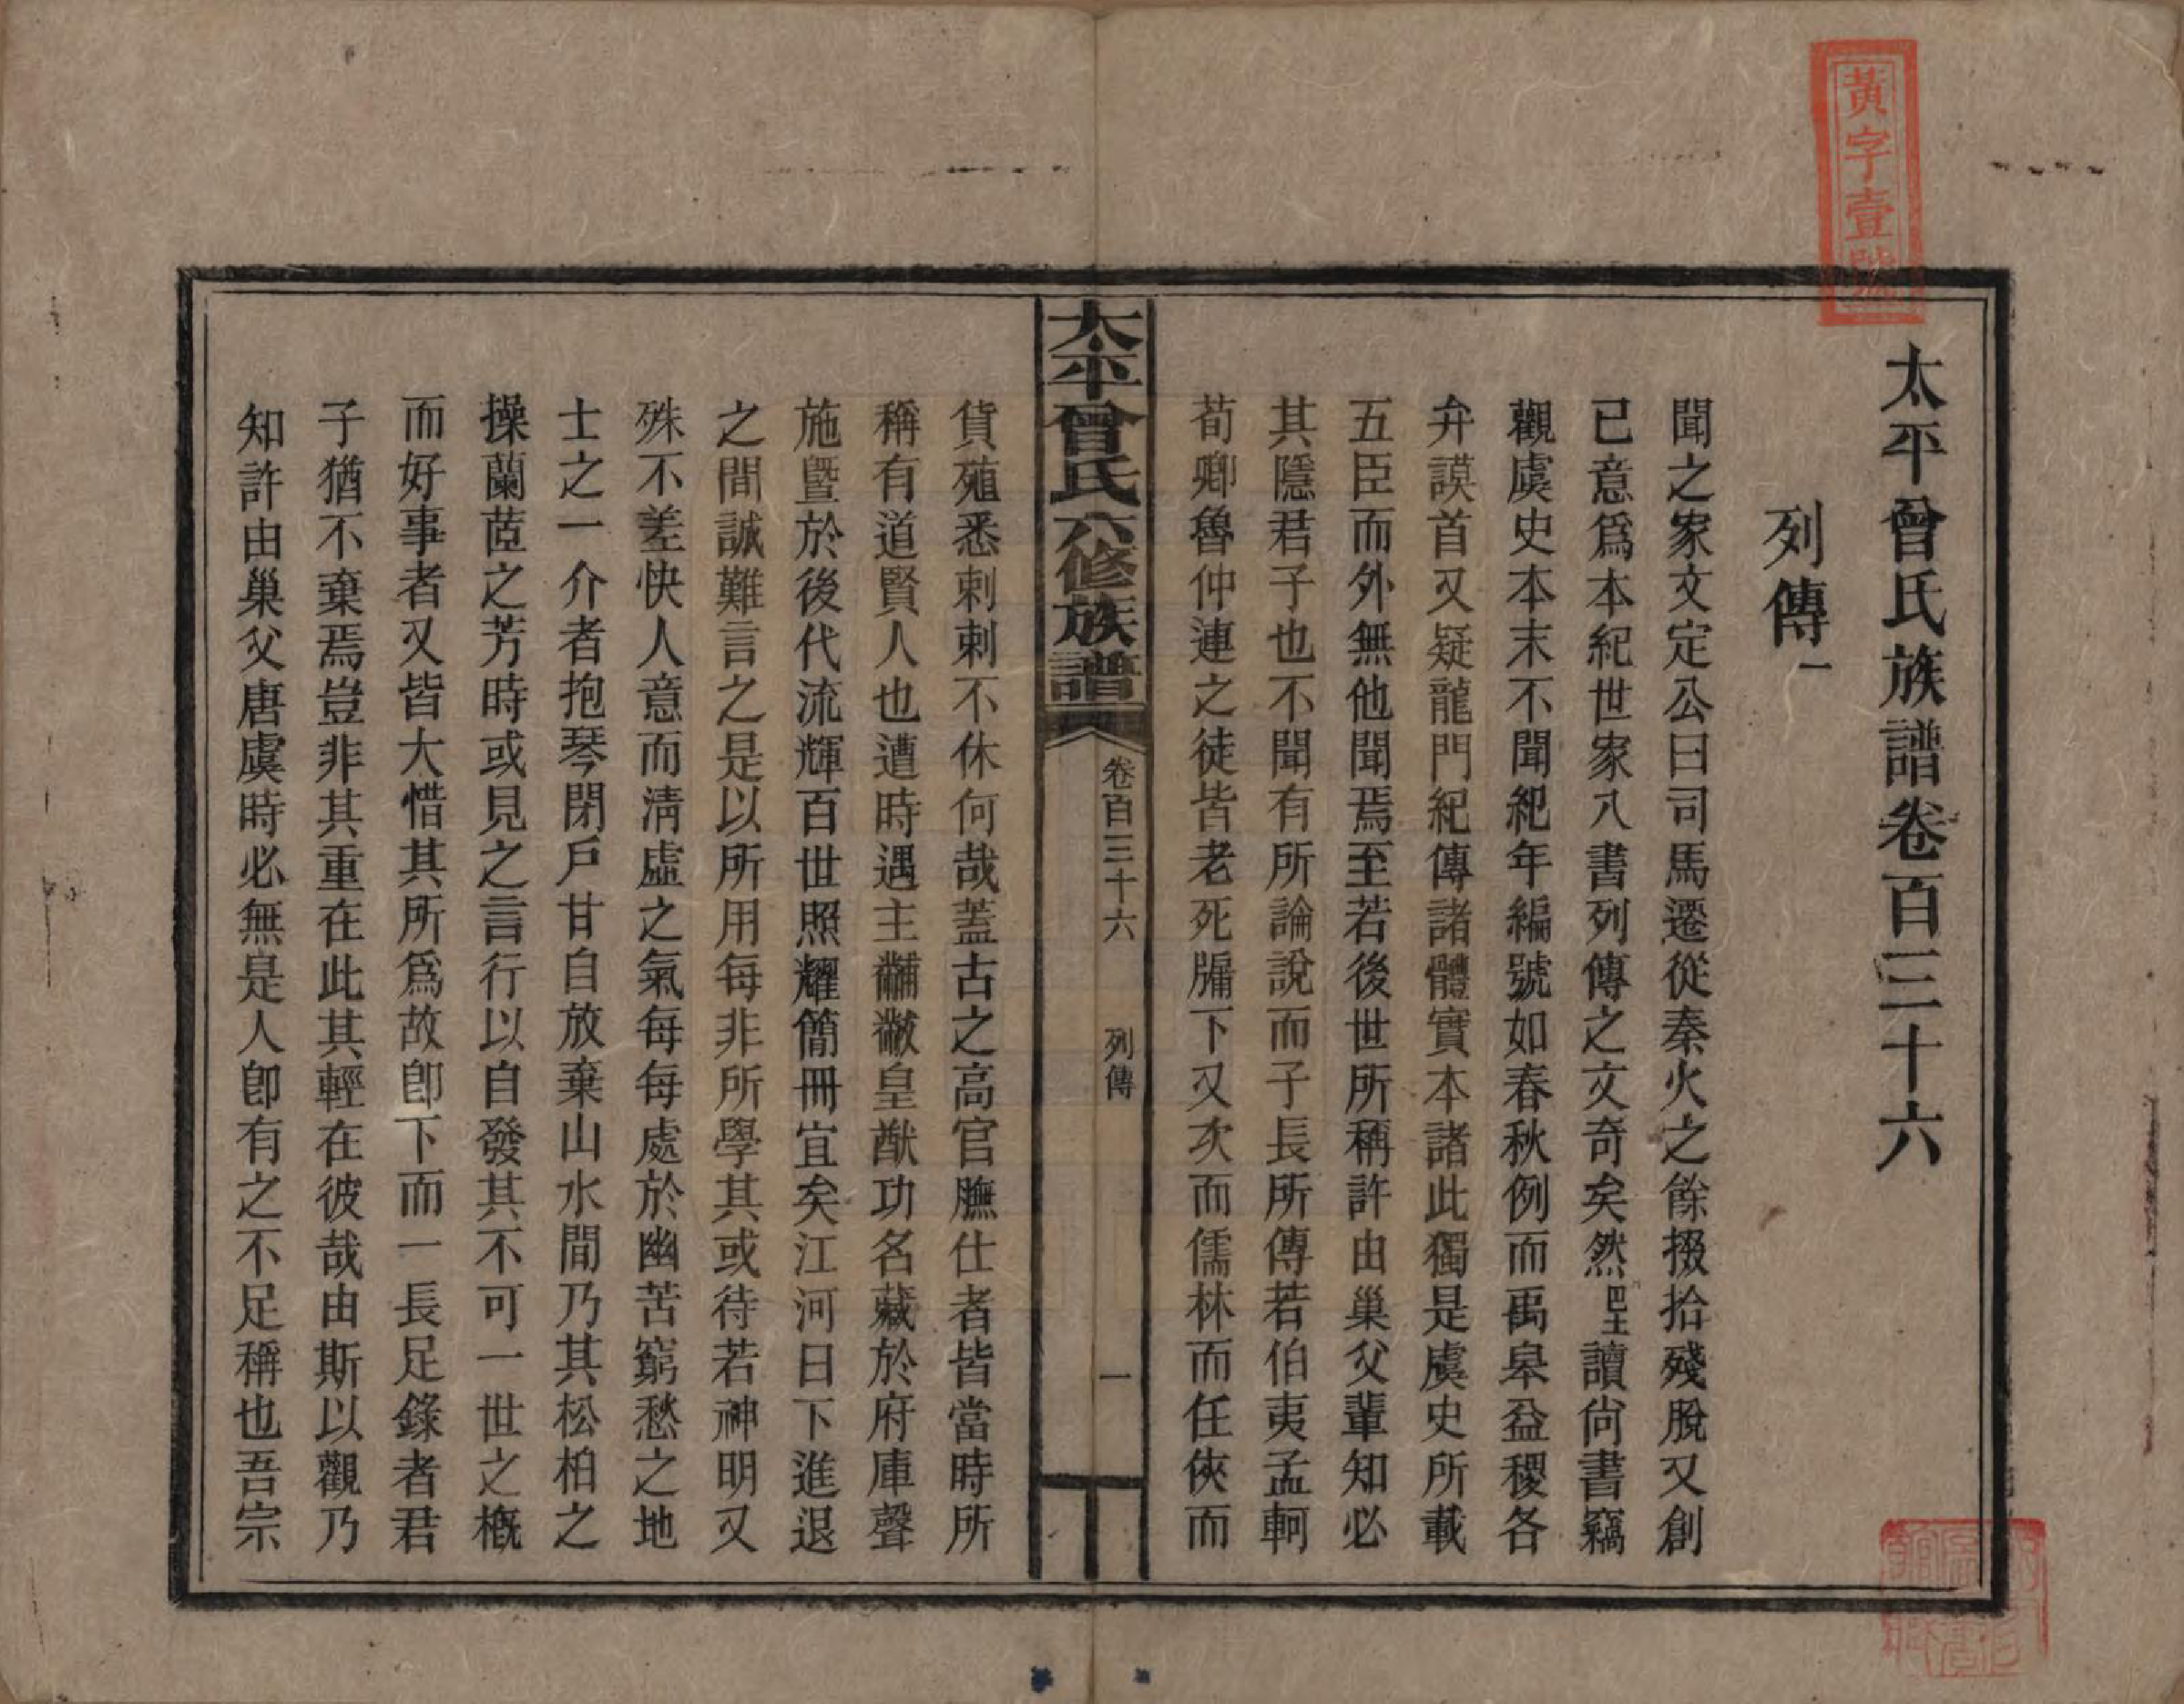 黃字壹號
太平曾氏族譜卷百三十六
列傳一
聞之家文定公曰司馬遷從秦火之餘掇拾殘脫又創
已意爲本紀世家八書列傳之文奇矣然巴土讀尙書竊
觀虞史本末不聞紀年編號如春秋例而禹皋益稷各
弁謨首又疑龍門紀傳諸體實本諸此獨是虞史所載
五臣而外無他聞焉至若後世所稱許由巢父輩知必
其隱君子也不聞有所論說而子長所傳若伯夷孟軻
荀卿魯仲連之徒皆老死牖下又次而儒林而任俠而
太平曾氏六修族譜 卷百三十六 列傳 一
貨殖悉剌剌不休何哉蓋古之高官膴仕者皆當時所
稱有道賢人也遭時遇主黼黻皇猷功名藏於府庫聲
施曁於後代流輝百世照耀簡冊宜矣江河日下進退
之間誠難言之是以所用每非所學其或待若神明又
殊不差快人意而淸虛之氣每每處於幽苦窮愁之地
士之一介者抱琴閉戶甘自放棄山水間乃其松柏之
操蘭茝之芳時或見之言行以自發其不可一世之槪
而好事者又皆大惜其所爲故卽下而一長足錄者君
子猶不棄焉豈非其重在此其輕在彼哉由斯以觀乃
知許由巢父唐虞時必無是人卽有之不足稱也吾宗